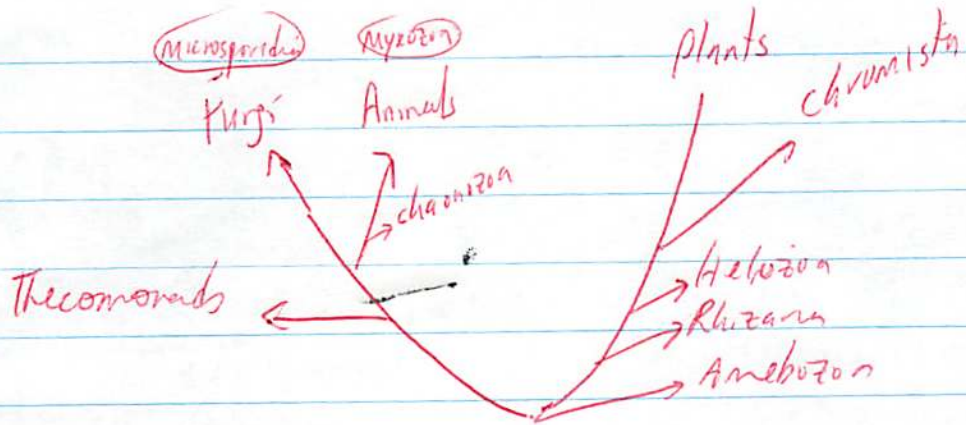 Microsporidia Myxozoa Plants
Fungi Animals chromista
choanozoa
Thecomonads Heliozoa
Rhizaria
Amebozoa